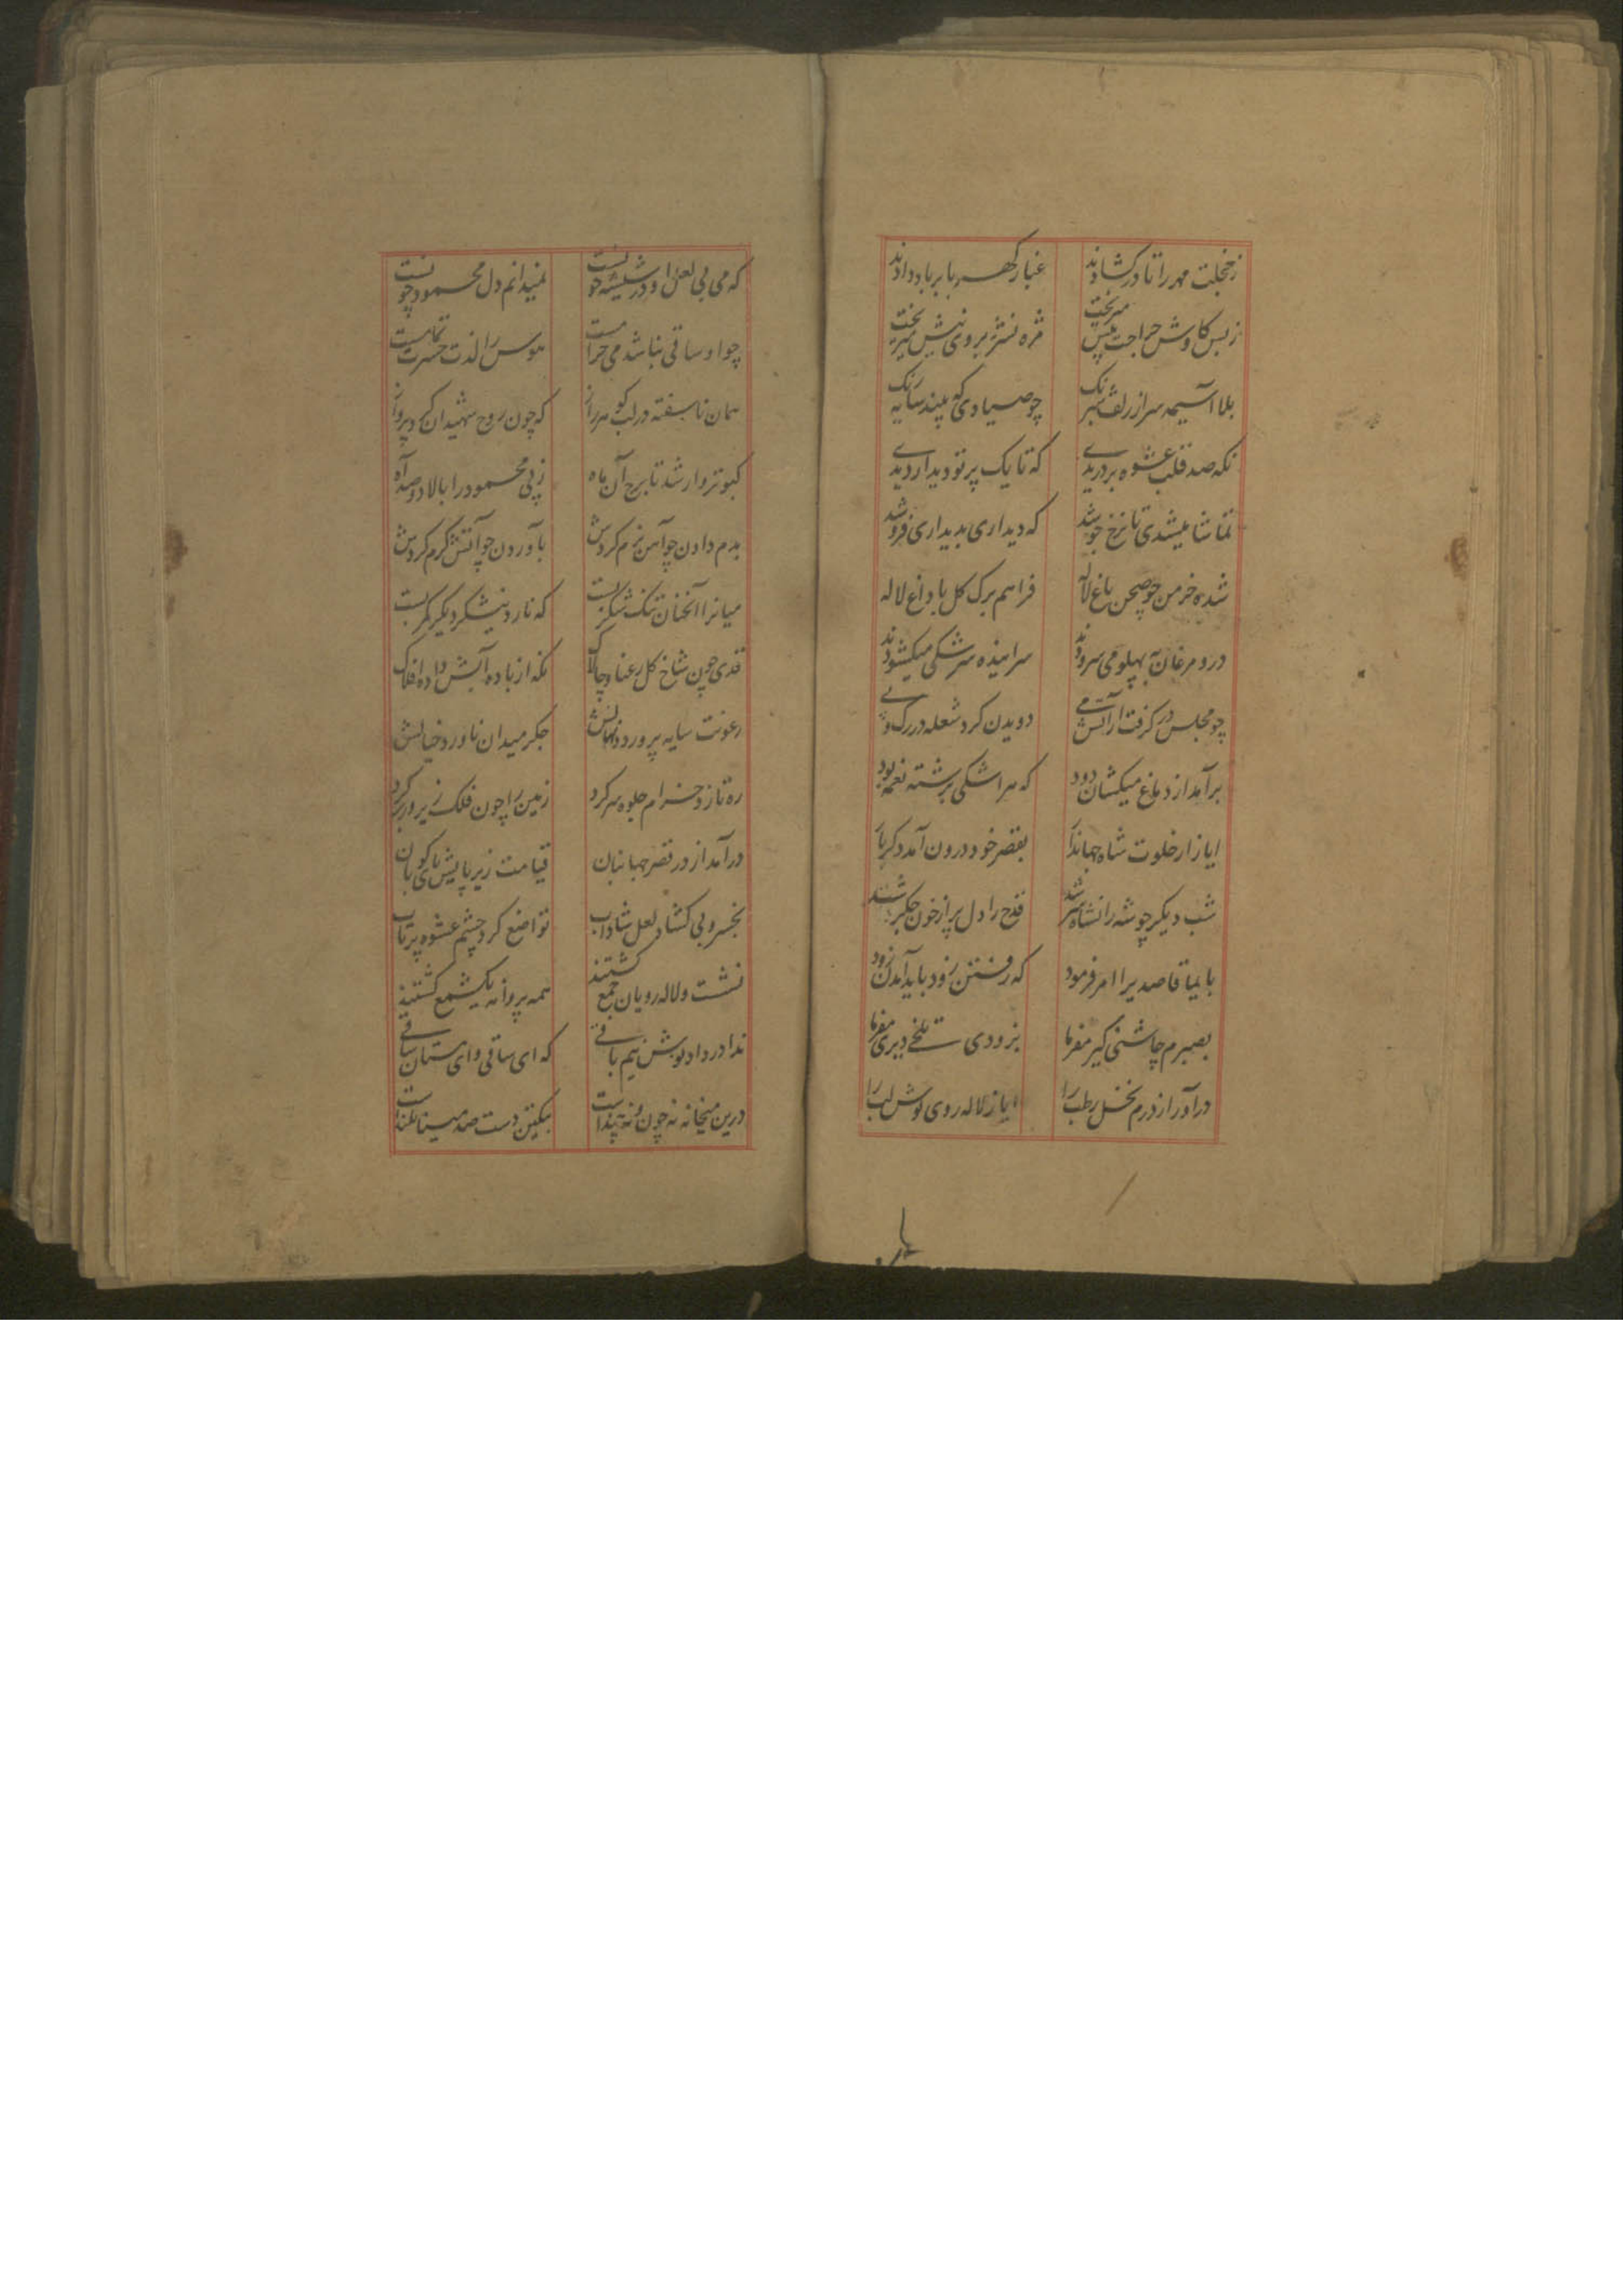 زخجلت مهر را تا در کشادند غبار کهربا بر باد دادند
ز بس کاوش جراحت پیش میریخت مژه نشتر بروی نیش میریخت
بلا آسیمه سر از زلف شبرنک چو صیادی که بیند سایه رنک
نکه صد قلب عشوه بردریدی که تا یک پرتو دیدار دیدی
تماشا میشدی تا نرخ جوشد که دیداری بدیداری فروشد
شده خرمن چو صحن باغ لاله فراهم برک کل با داغ لاله
درو مرغان به پهلو می سرودند سراینده سرشکی میکشودند
چو مجلس در کرفت از آتش می دویدن کرد شعله در رک و پی
برآمد از دماغ میکشان دود که هر اشکی برشته نغمه بود
ایاز از خلوت شاه جهاندار بقصر خود درون آمد دکربار
شب دیکر چو شه را نشاه سر شد قدح را دل پر از خون جکر شد
بایما قاصدیرا امر فرمود که رفتن زود باید آمدن زود
بصبرم چاشنی کیر مفرما بزودی تلخی دیری مفرما
درآور از درم نخل رطب را ایاز لاله روی نوش لب را
که می بی لعل او در شیشه خونست نمیدانم دل محمود چونست
چو او ساقی نباشد می حرامست هوس را لذت حسرت تمامست
همان ناسفته در لب کوهر راز که چون روح شهیدان کرد پرواز
کبوتروار شد تا برج آن ماه ز پی محمود را بالا دو صد آه
بدم دادن چو آهن نرم کردش باوردن چو آتش کرم کردش
میانرا آنچنان تنک شکر بست که نارد نیشکر دیکر کمر بست
قدی چون شاخ کل رعنا و چالاک نکه از باده آتش داده افلاک
رعونت سایه پرورد نهالش جکر میدان ناورد خیالش
ره ناز و خرام جلوه سر کرد زمین را چون فلک زیر و زبر کرد
درآمد از در قصر جهانبان قیامت زیر پایش پای کوبان
بخسرو بی کشاد لعل شاداب تواضع کرد چشم عشوه پرتاب
نشست و لاله رویان جمع کشتند همه پروانه یکشمع کشتند
ندا در داد نوش نیم باقی که ای ساقی و ای مستان ساقی
درین میخانه نه چون و نه چنداست بیکتن دست صد مینا بلنداست